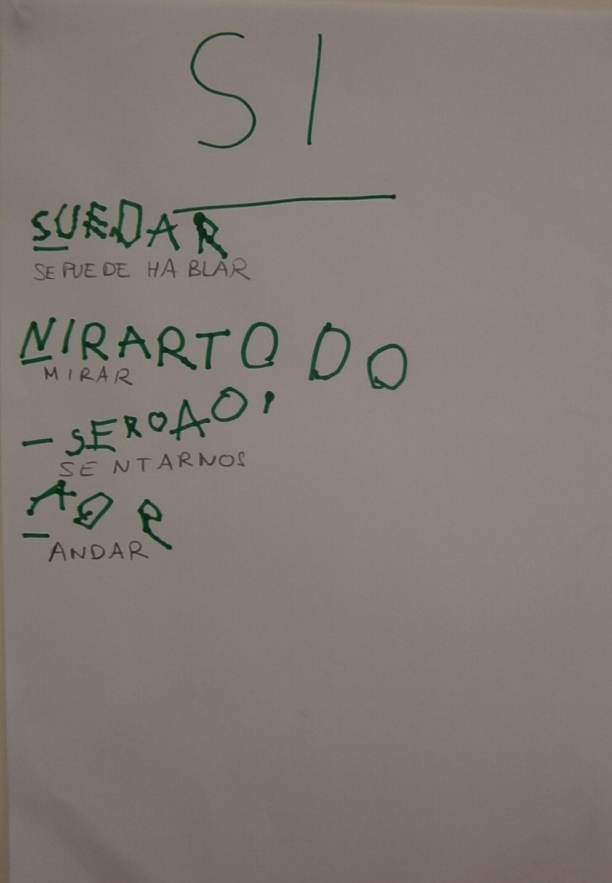 SI
SUEDAR
SE PUEDE HABLAR
NIRARTODO
MIRAR
- SEROAO
SENTARNOS
AOR
ANDAR